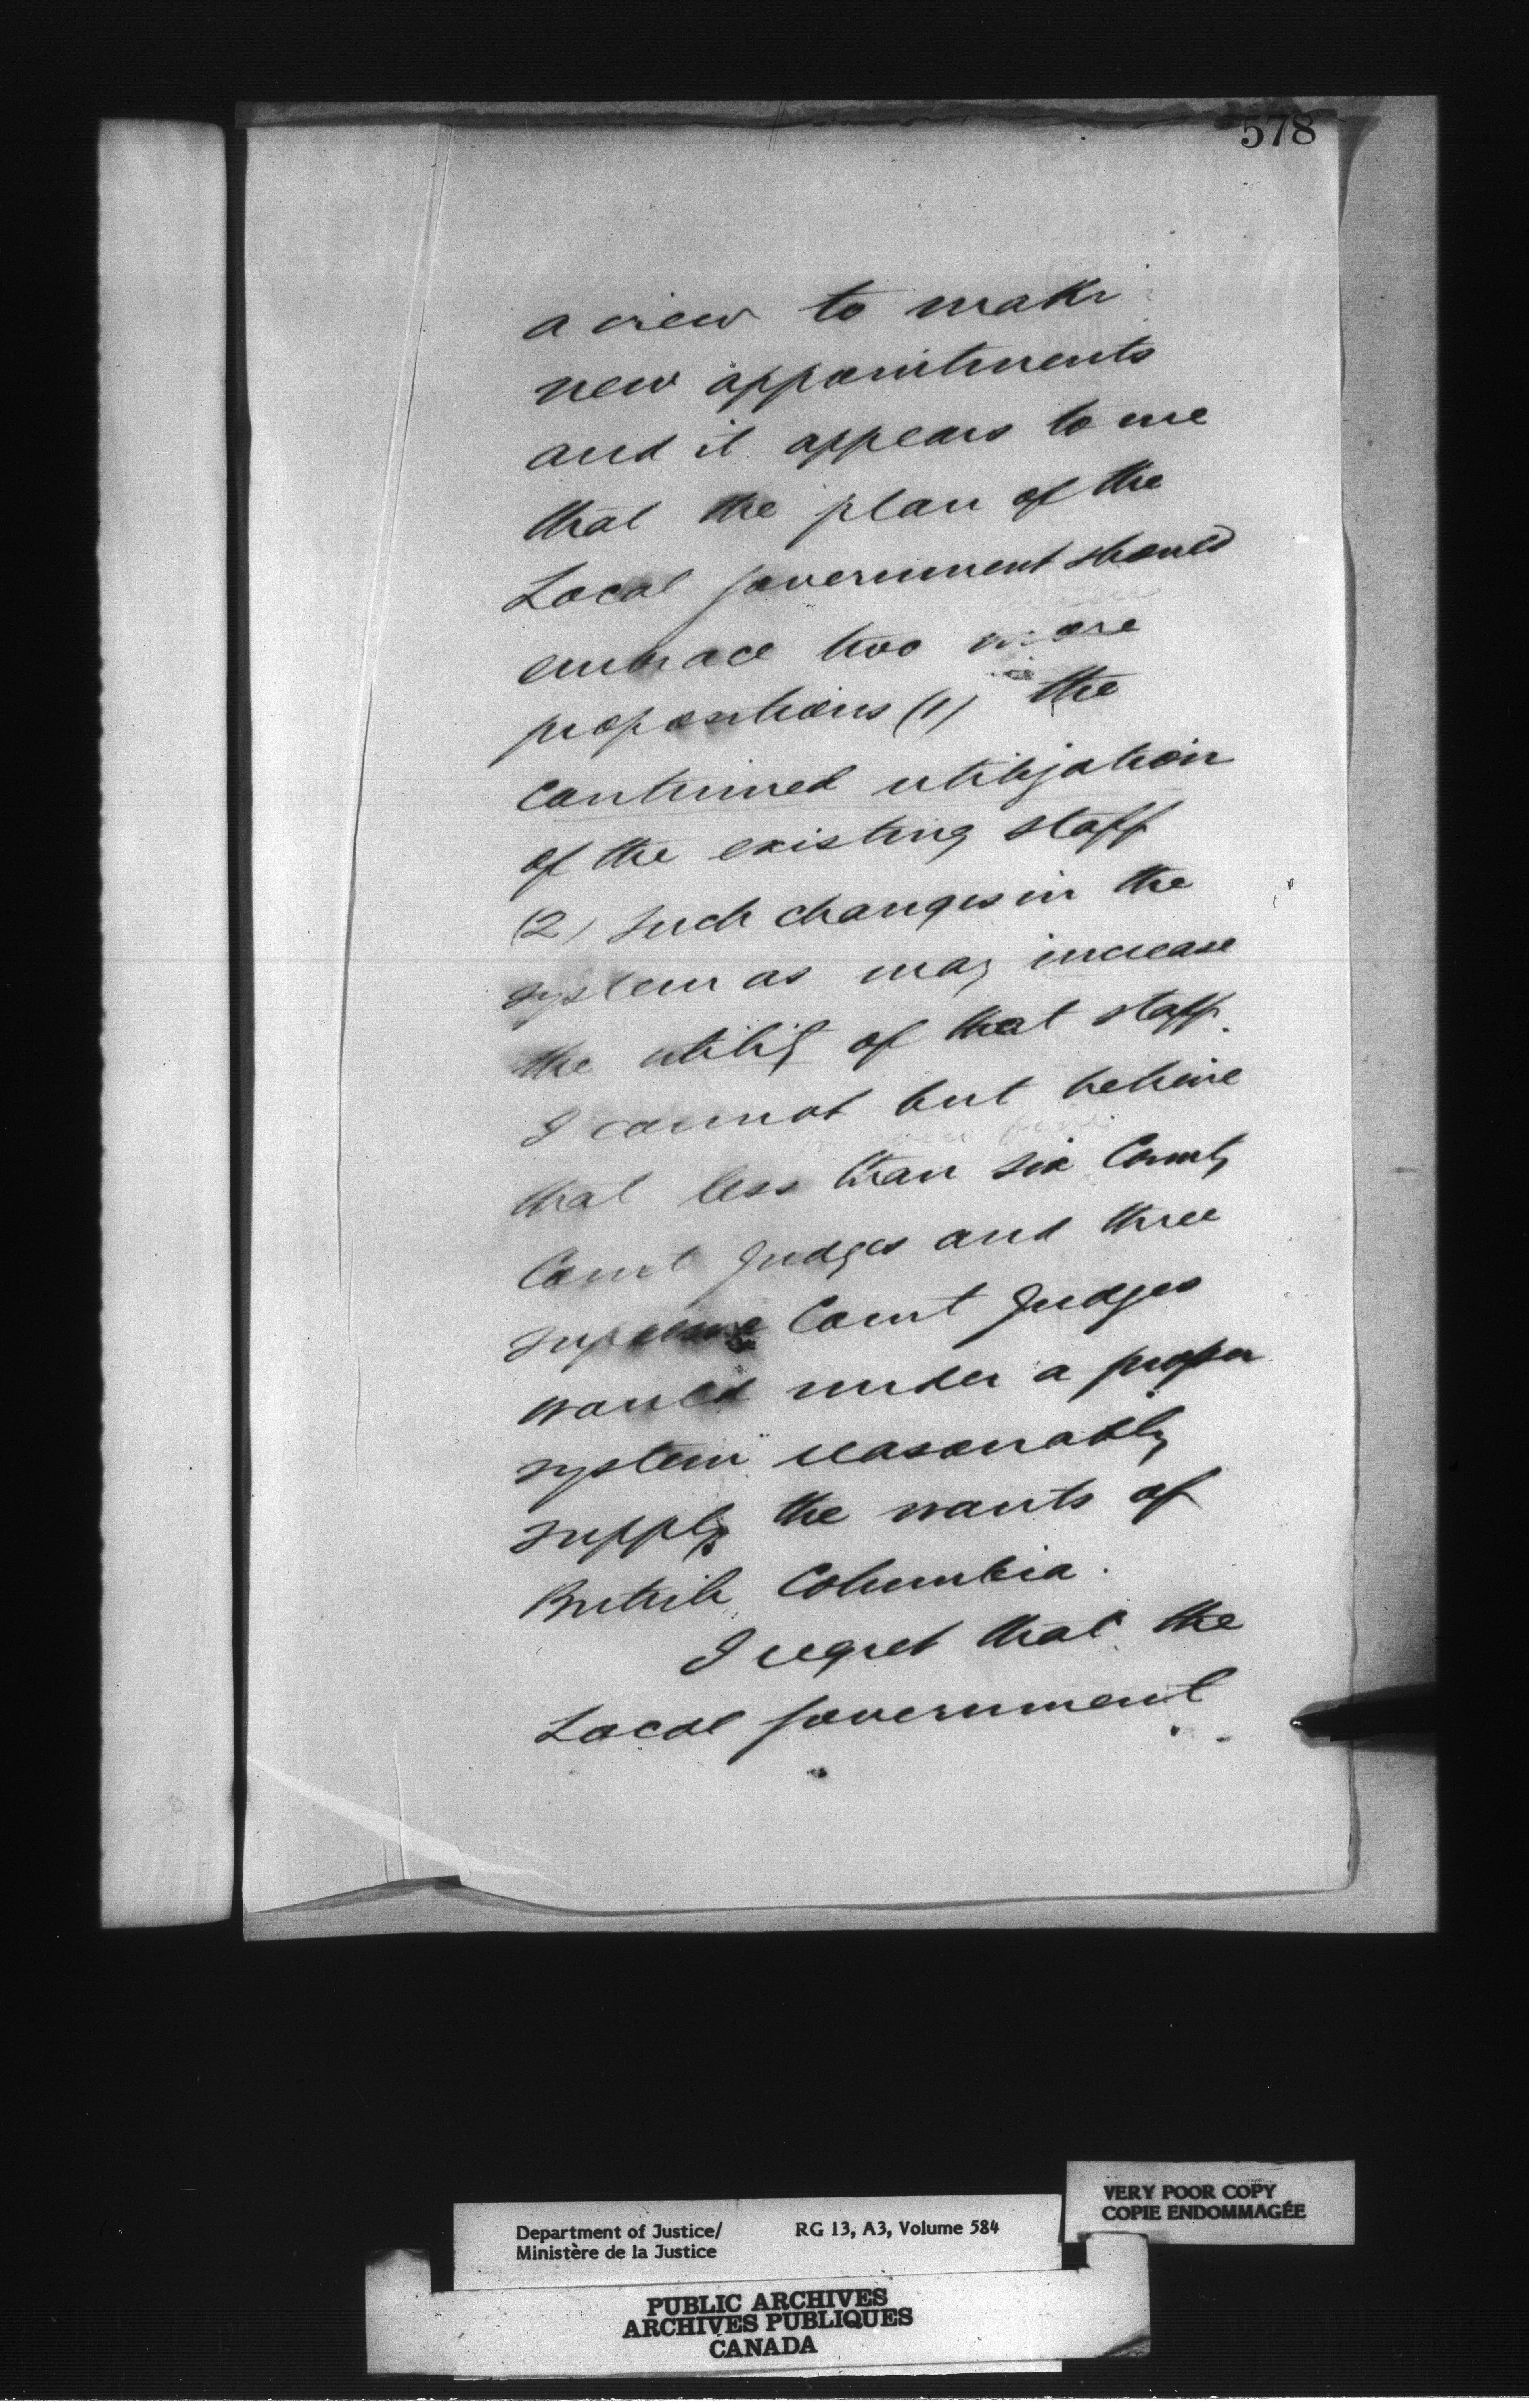 578
a view to make
new appointments
and it appears to me
that the plan of the
Local Government should
embrace two more
propositions (1) the
continued utilization
of the existing staff
(2) such changes in the
system as may increase
the utility of that staff.
I cannot but believe
that less than six County
Court Judges and three
Supreme Court Judges
would under a proper
system reasonably
supply the wants of
British Columbia.
I regret that the
Local Government
VERY POOR COPY
COPIE ENDOMMAGÉE
Department of Justice/ RG 13, A3, Volume 584
Ministère de la Justice
PUBLIC ARCHIVES
ARCHIVES PUBLIQUES
CANADA